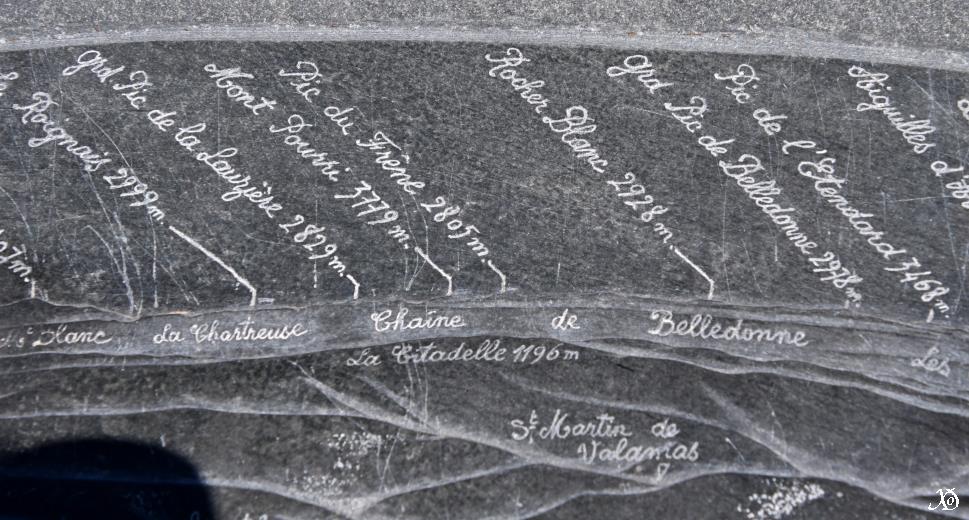 Roignais 2999m.
Grd Pic de la Lauzière 2829m.
Mont Pourri 3779m.
Pic du Frêne 2805m.
Rocher Blanc 2928m.
Grd Pic de Belledonne 2978m.
Pic de l'Etendard 3468m.
Aiguilles d'
07m.
Blanc
La Chartreuse
Chaîne de Belledonne
Les
La Citadelle 1196m
St Martin de
Valamas